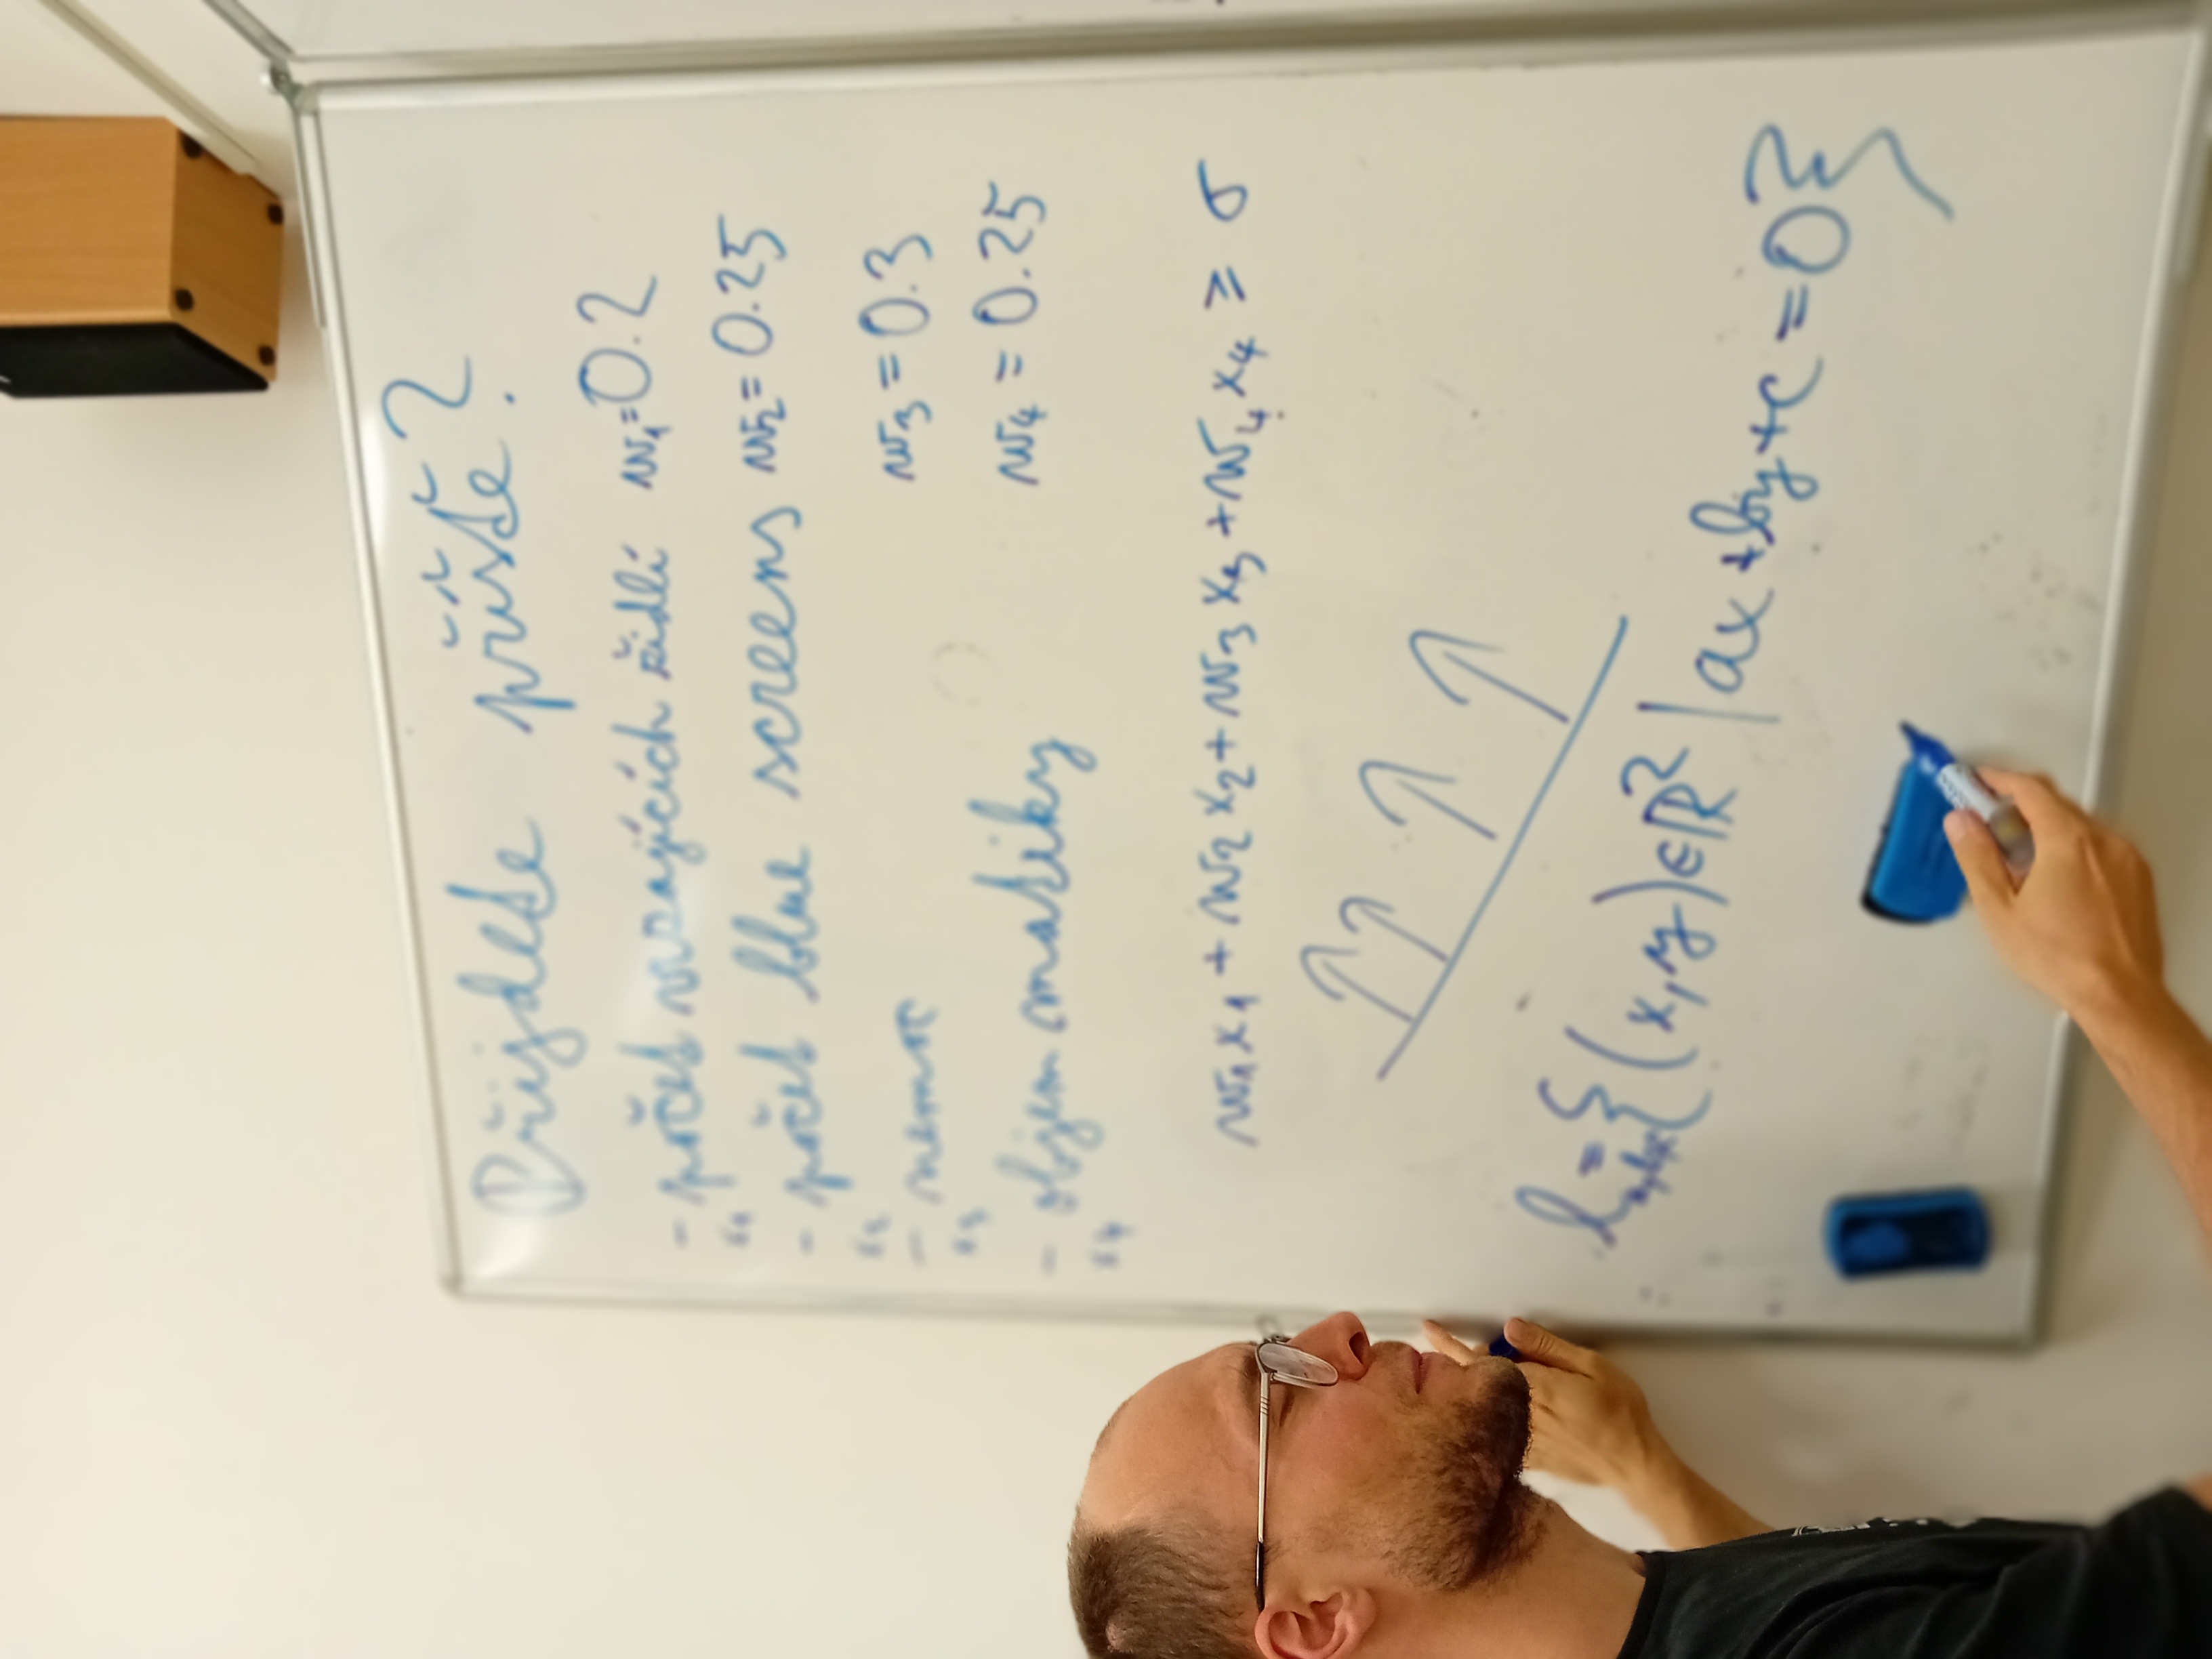 Přijdete příště?
- počet vrzajících židlí w₁=0.2
x₁
- počet blue screens w₂=0.25
x₂
- nemoc w₃=0.3
x₃
- objem matiky w₄=0.25
x₄
w₁x₁+w₂x₂+w₃x₃+w₄x₄ ≥ σ
={(x,y)∈ℝ² | ax+by+c=0}